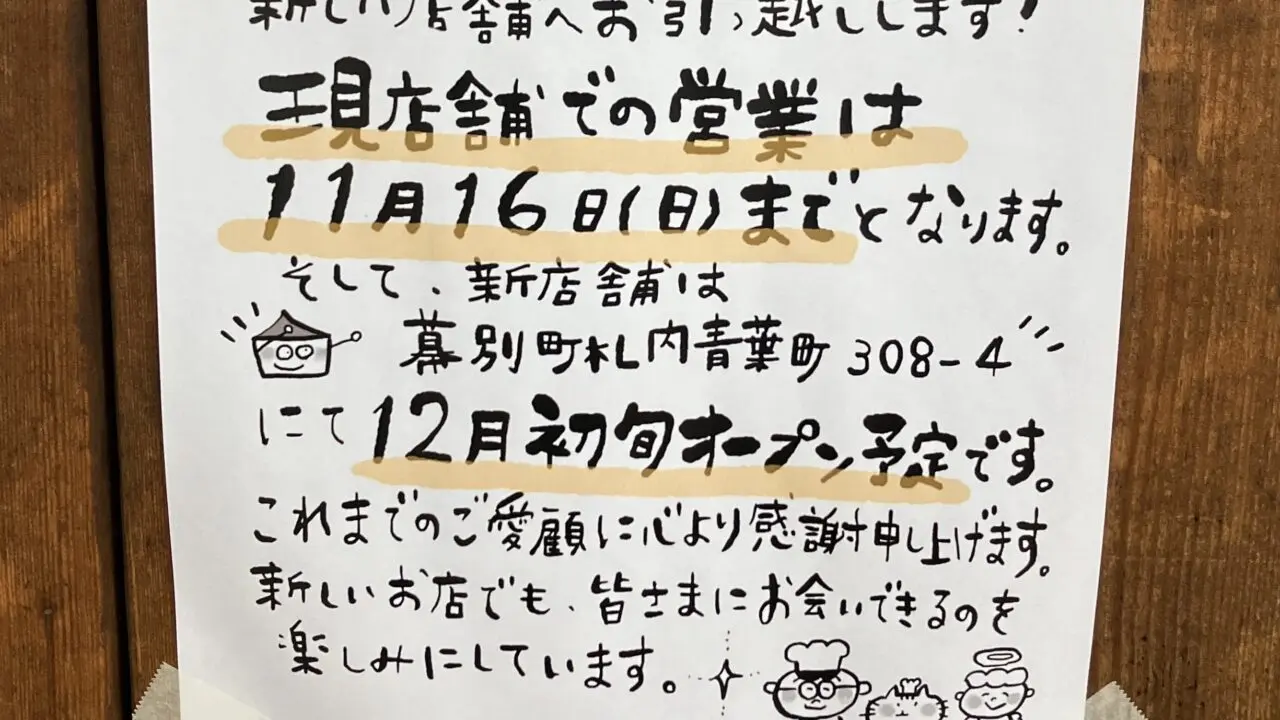 新しい店舗へお引っ越しします!
現店舗での営業は
11月16日(日)までとなります。
そして、新店舗は
幕別町札内青葉町308-4
にて12月初旬オープン予定です。
これまでのご愛顧に心より感謝申し上げます。
新しいお店でも、皆さまにお会いできるのを
楽しみにしています。